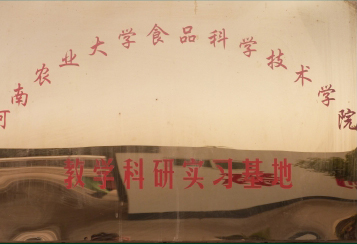 河南农业大学食品科学技术学院
教学科研实习基地